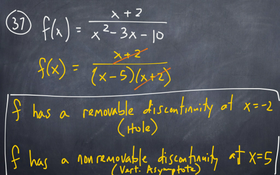 37) f(x) = (x+2)/(x²-3x-10)
f(x) = (x+2)/((x-5)(x+2))
f has a removable discontinuity at x=-2
(Hole)
f has a nonremovable discontinuity at x=5
(Vert. Asymptote)